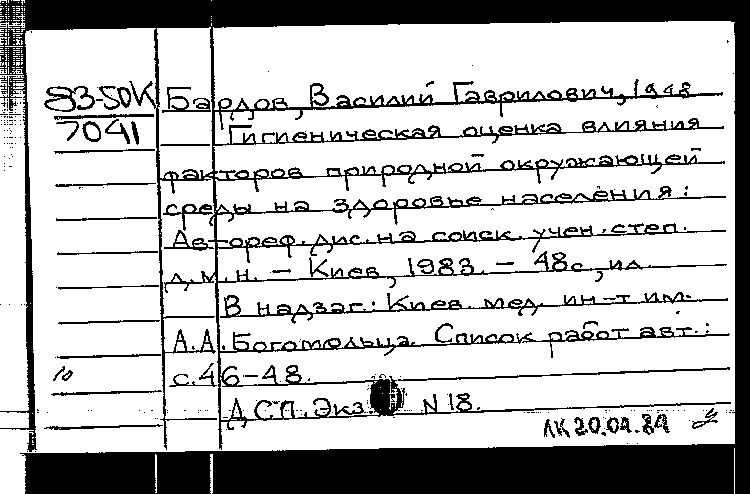 83-50К Бардов, Василий Гаврилович, 1948
7041 Гигиеническая оценка влияния
факторов природной окружающей
среды на здоровье населения:
Автореф. дис. на соиск. учен. степ.
д.м.н. – Киев, 1983. – 48с., ил.
В надзаг.: Киев. мед. ин-т им.
А.А. Богомольца. Список работ авт.:
10 с.46-48.
ДСП. Экз N 18.
ЛК 20.04.84